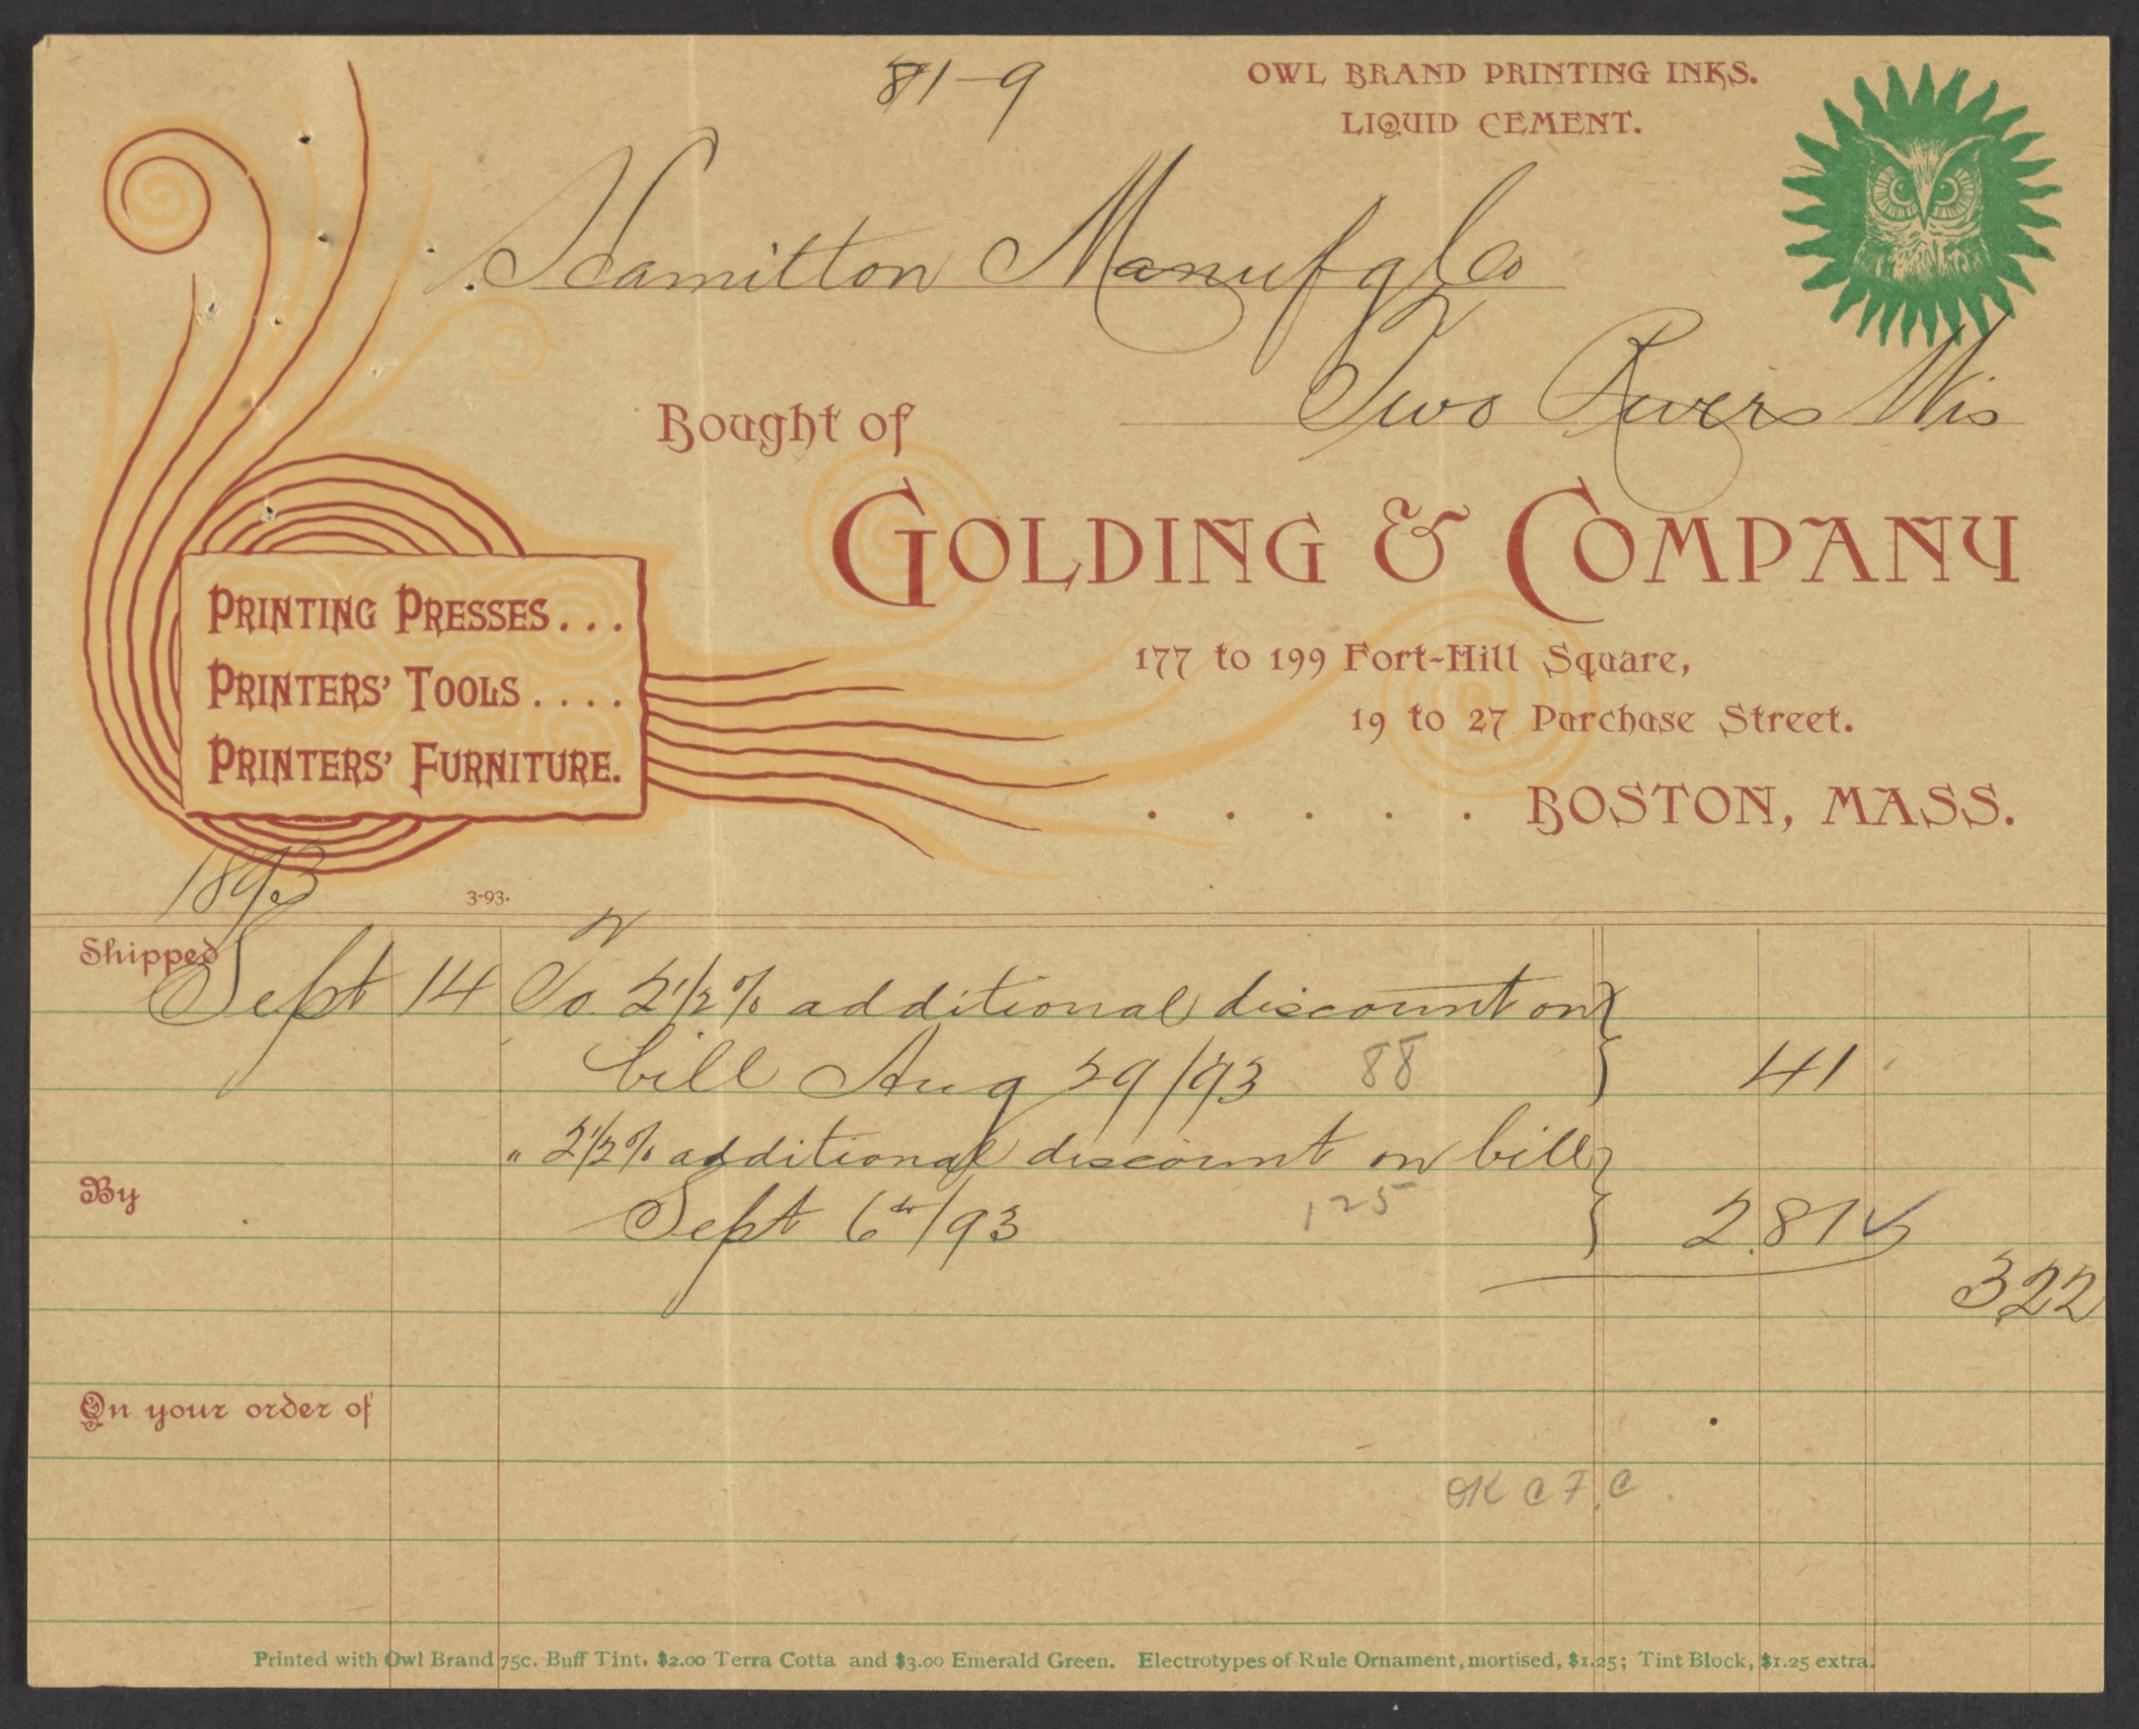 81-9
OWL BRAND PRINTING INKS.
LIQUID CEMENT.
Hamilton Manufg Co
Two Rivers Wis
Bought of
GOLDING & COMPANY
PRINTING PRESSES...
PRINTERS' TOOLS....
PRINTERS' FURNITURE.
177 to 199 Fort-Hill Square,
19 to 27 Purchase Street.
. . . . . BOSTON, MASS.
1893
3-93.
Shipped
Sept 14 To 2 1/2 % additional discount on
bill Aug 29/93 88 41
" 2 1/2 % additional discount on bill
By
Sept 6th/93 125 2.81 ✓
3.22
On your order of
OK C F. C
Printed with Owl Brand 75c. Buff Tint, $2.00 Terra Cotta and $3.00 Emerald Green. Electrotypes of Rule Ornament, mortised, $1.25; Tint Block, $1.25 extra.